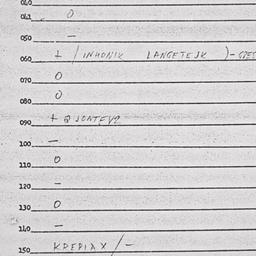 040
041 0
050 -
060 + / INHONIK LANGETEJK ) -
070 0
080 0
090 +
100 -
110 0
120 -
130 0
140 -
150 KREPIAX / -